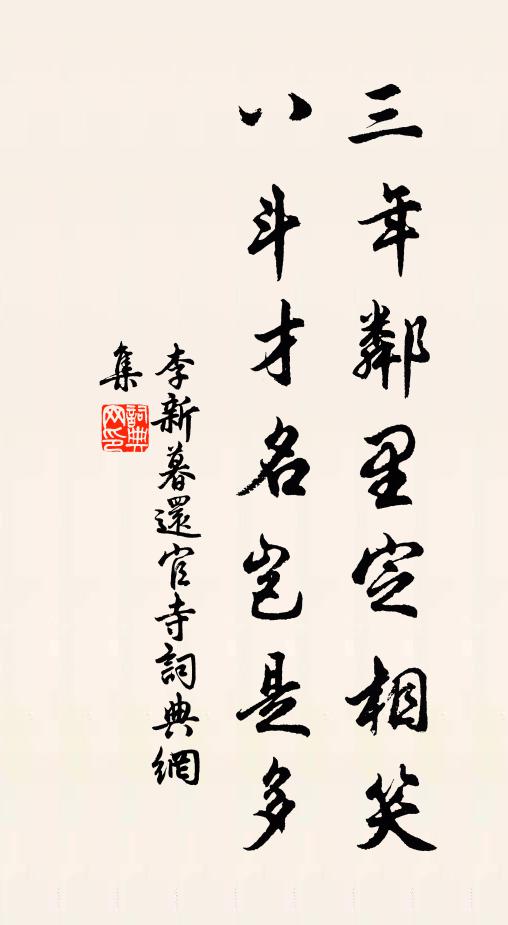 三年鄰里定相笑
八斗才名豈是多
李新暮還官寺詞典網
集
詞典
网印